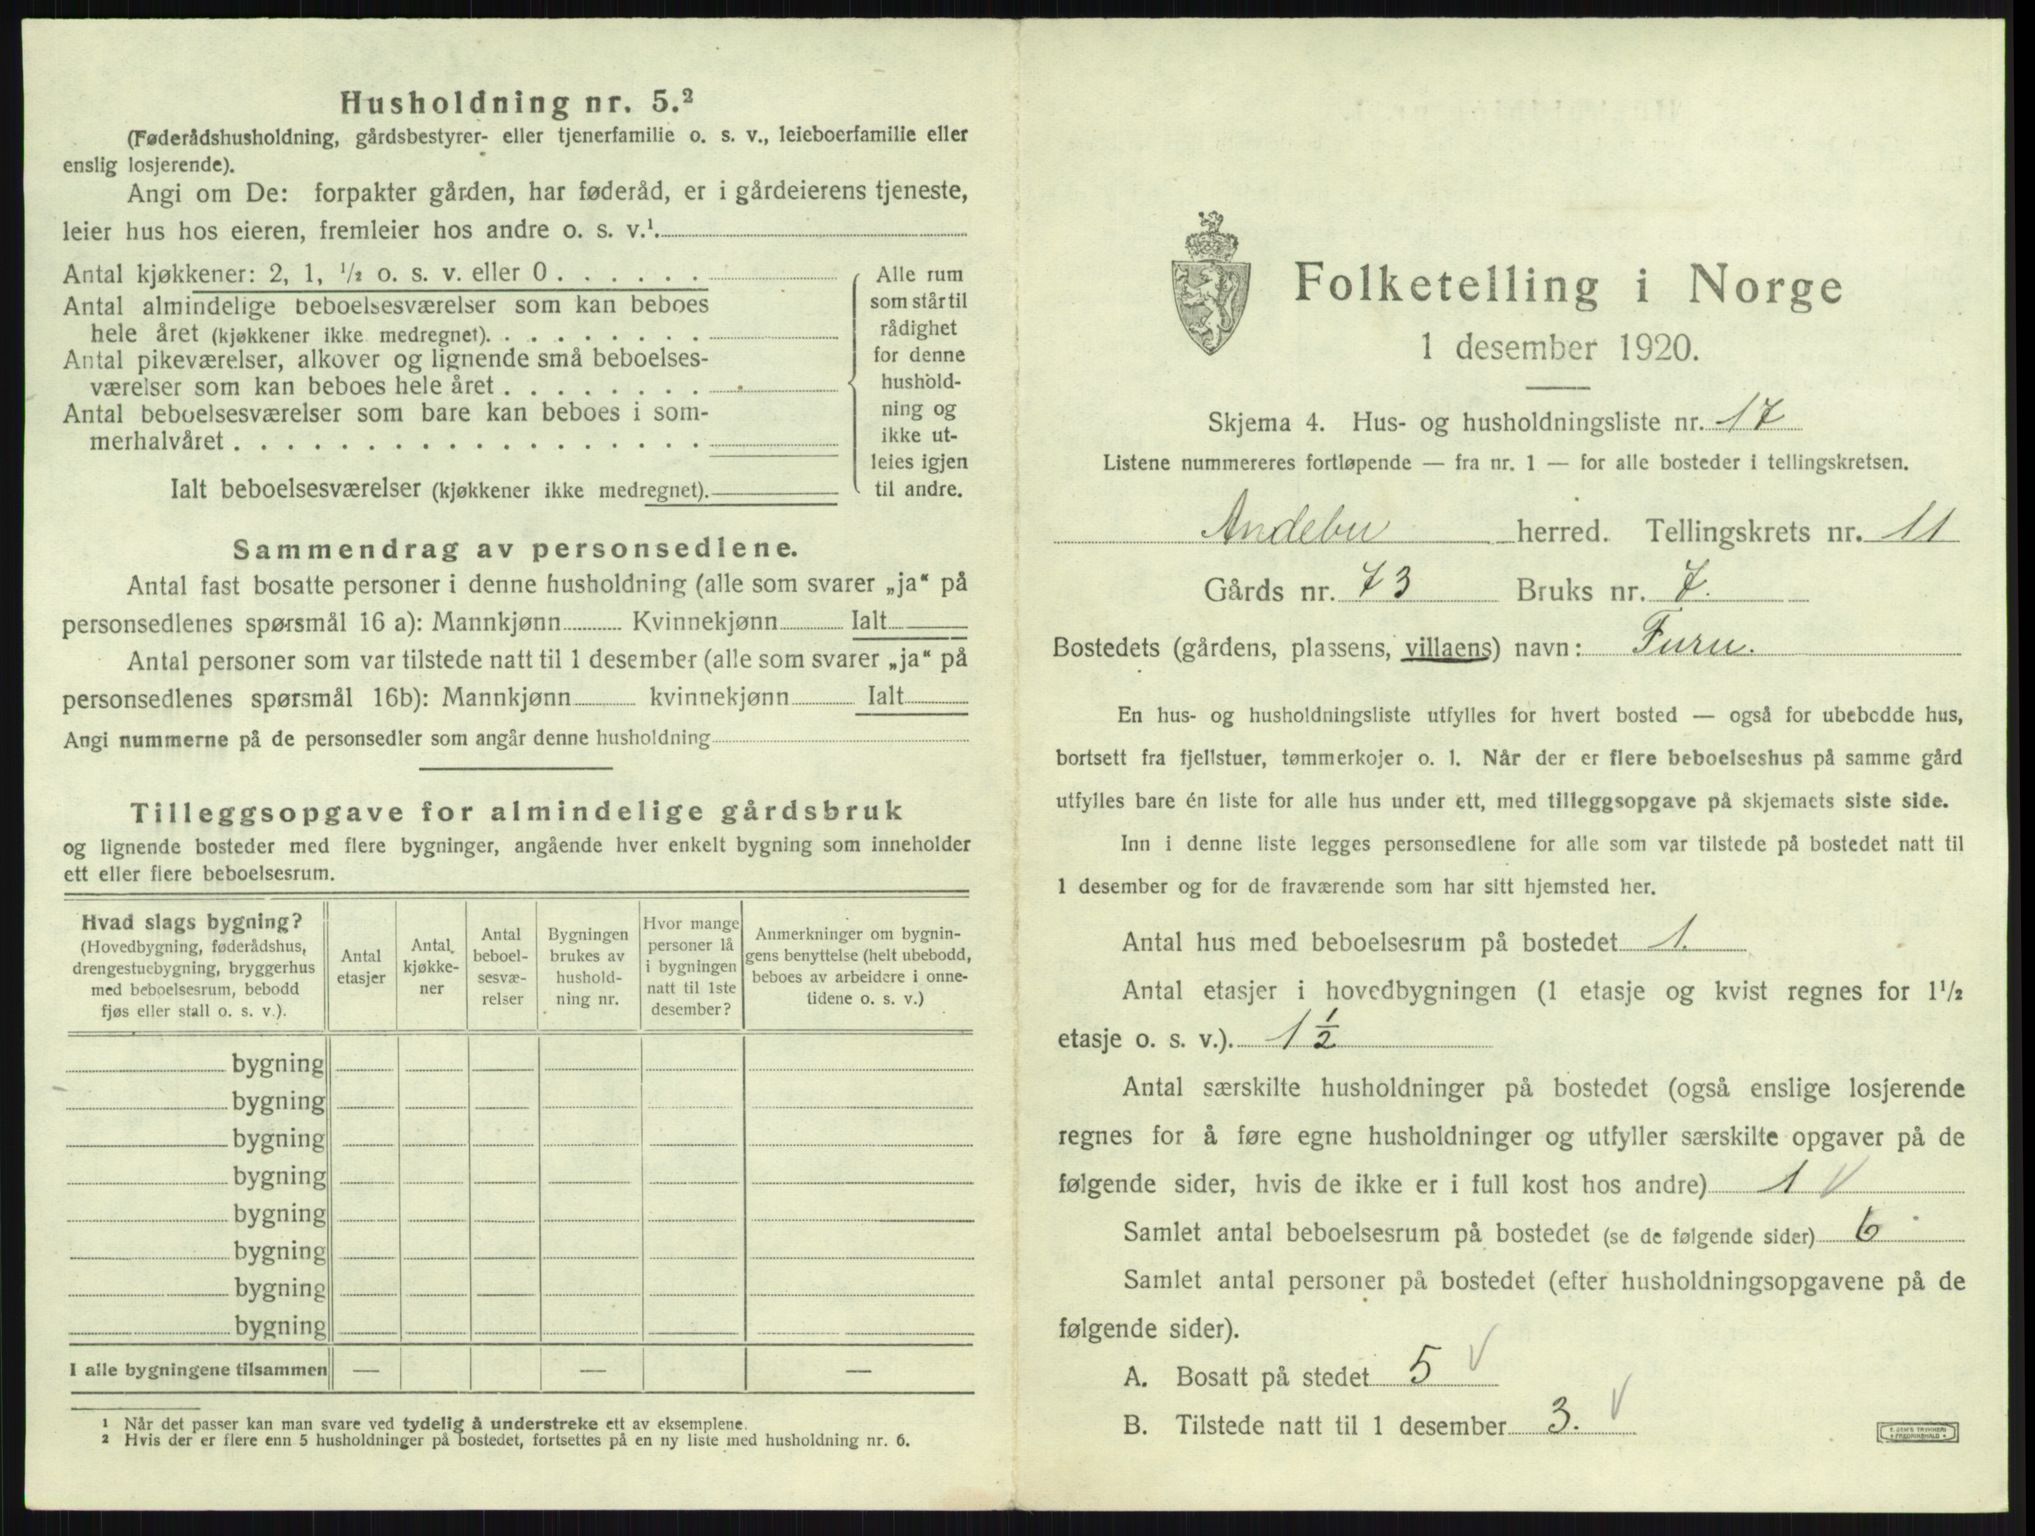 Husholdning nr. 5.²
(Føderådshusholdning, gårdsbestyrer- eller tjenerfamilie o. s. v., leieboerfamilie eller
enslig losjerende).
Angi om De: forpakter gården, har føderåd, er i gårdeierens tjeneste,
leier hus hos eieren, fremleier hos andre o. s. v.¹
Antal kjøkkener: 2, 1, ½ o. s. v. eller 0 . . . . . .
Antal almindelige beboelsesværelser som kan beboes
hele året (kjøkkener ikke medregnet). . . . . . . . .
Antal pikeværelser, alkover og lignende små beboelses-
værelser som kan beboes hele året . . . . . . . .
Antal beboelsesværelser som bare kan beboes i som-
merhalvåret . . . . . . . . . . . . . . . . . .
Ialt beboelsesværelser (kjøkkener ikke medregnet).
Alle rum
som står til
rådighet
for denne
hushold-
ning og
ikke ut-
leies igjen
til andre.
Sammendrag av personsedlene.
Antal fast bosatte personer i denne husholdning (alle som svarer „ja“ på
personsedlenes spørsmål 16 a): Mannkjønn Kvinnekjønn Ialt
Antal personer som var tilstede natt til 1 desember (alle som svarer „ja“ på
personsedlenes spørsmål 16b): Mannkjønn kvinnekjønn Ialt
Angi nummerne på de personsedler som angår denne husholdning
Tilleggsopgave for almindelige gårdsbruk
og lignende bosteder med flere bygninger, angående hver enkelt bygning som inneholder
ett eller flere beboelsesrum.
Hvad slags bygning?
(Hovedbygning, føderådshus,
drengestuebygning, bryggerhus
med beboelsesrum, bebodd
fjøs eller stall o. s. v.).
Antal
etasjer
Antal
kjøkke-
ner
Antal
beboel-
sesvæ-
relser
Bygningen
brukes av
hushold-
ning nr.
Hvor mange
personer lå
i bygningen
natt til 1ste
desember?
Anmerkninger om bygnin-
gens benyttelse (helt ubebodd,
beboes av arbeidere i onne-
tidene o. s. v.)
bygning
bygning
bygning
bygning
bygning
bygning
bygning
bygning
I alle bygningene tilsammen — — —
¹ Når det passer kan man svare ved tydelig å understreke ett av eksemplene.
² Hvis der er flere enn 5 husholdninger på bostedet, fortsettes på en ny liste med husholdning nr. 6.
Folketelling i Norge
1 desember 1920.
Skjema 4. Hus- og husholdningsliste nr. 17
Listene nummereres fortløpende — fra nr. 1 — for alle bosteder i tellingskretsen.
Andebu herred. Tellingskrets nr. 11
Gårds nr. 73 Bruks nr. 7.
Bostedets (gårdens, plassens, villaens) navn: Furu.
En hus- og husholdningsliste utfylles for hvert bosted — også for ubebodde hus,
bortsett fra fjellstuer, tømmerkojer o. l. Når der er flere beboelseshus på samme gård
utfylles bare én liste for alle hus under ett, med tilleggsopgave på skjemaets siste side.
Inn i denne liste legges personsedlene for alle som var tilstede på bostedet natt til
1 desember og for de fraværende som har sitt hjemsted her.
Antal hus med beboelsesrum på bostedet 1.
Antal etasjer i hovedbygningen (1 etasje og kvist regnes for 1½
etasje o. s. v.). 1 ½
Antal særskilte husholdninger på bostedet (også enslige losjerende
regnes for å føre egne husholdninger og utfyller særskilte opgaver på de
følgende sider, hvis de ikke er i full kost hos andre) 1 V
Samlet antal beboelsesrum på bostedet (se de følgende sider) 6
Samlet antal personer på bostedet (efter husholdningsopgavene på de
følgende sider).
A. Bosatt på stedet 5 V
B. Tilstede natt til 1 desember 3. V